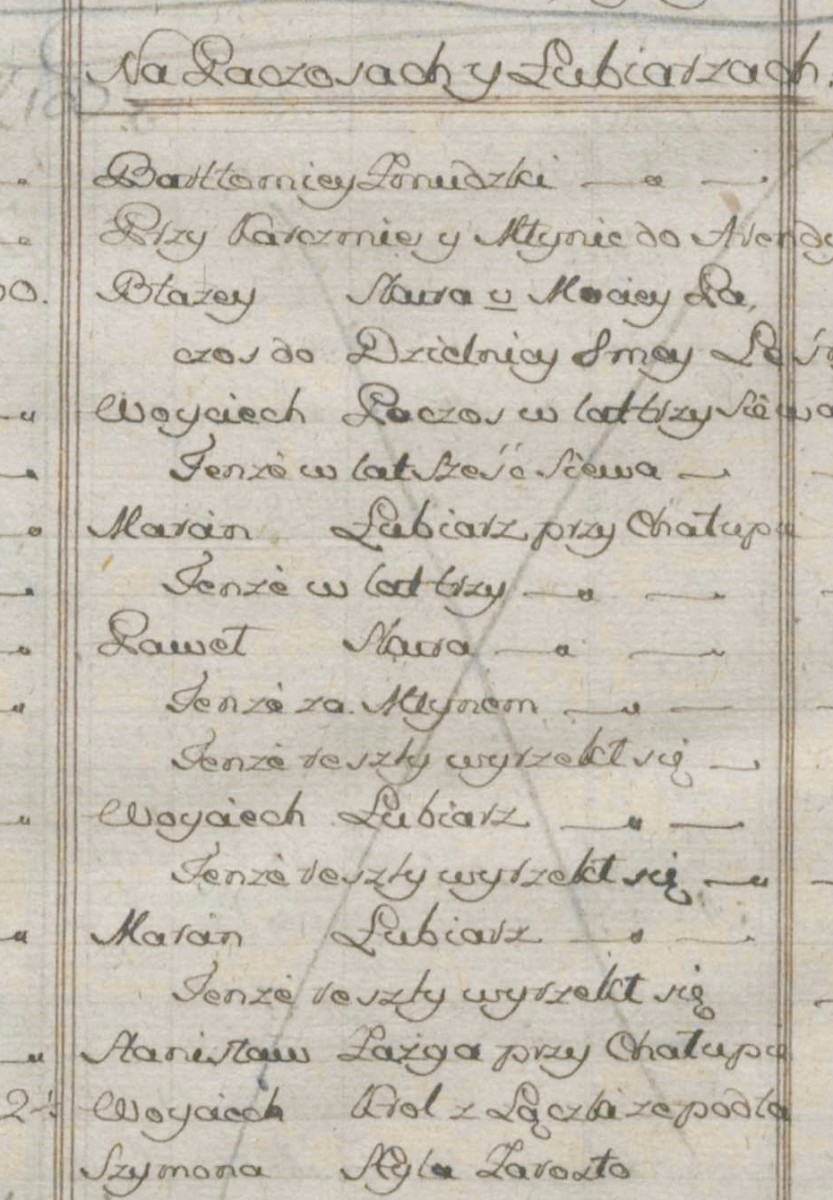 Na Paczosach y Lubiarzach.
Bartłomiey Żmudzki
Przy Karczmie y Młynie do Arendy
00. Błazey Stura v Maciey Pa,
czos do Dzielnicy 8mey
Woyciech Paczos w lat trzy siewa
Tenże w lat sześć siewa
Marcin Lubiarz przy Chałupie
Tenże w lat trzy
Paweł
Tenże za Młynem
Tenże reszty wyrzekł się
Woyciech Lubiarz
Tenże reszty wyrzekł się
Marcin Lubiarz
Tenże reszty wyrzekł się
Stanisław Zazga przy Chałupie
Woyciech Krol z Łączki zepodla
Szymona Zarosło